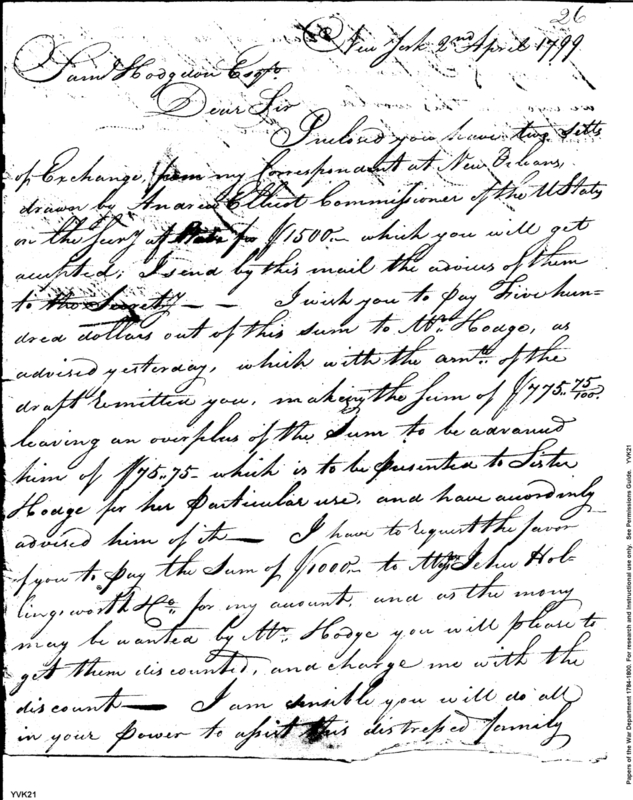 26
New York 2nd April 1799
Saml Hodgdon Esqr
Dear Sir
Inclosed you have two setts
of Exchange, from my Correspondent at New Orleans,
drawn by Andrew Ellicot Commissioner of the U States
on the Secry of State for $1500.. which you will get
accepted; I send by this mail the advices of them
to the Secrety — — I wish you to pay Five hun-
dred dollars out of this sum to Mr. Hodge, as
advised yesterday, which with the amt. of the
draft remitted you, making the Sum of $775.. 75/100
leaving an overplus of the Sum to be advanced
him of $75..75 which is to be presented to Sister
Hodge for her particular use, and have accordinly
advised him of it — I have to request the favor
of you to pay the Sum of $1000.. to Messrs Jehu Hol-
lingsworth & Co. for my account, and as the mony
may be wanted by Mr. Hodge you will please to
get them discounted, and charge me with the
discount — I am sensible you will do all
in your power to assist this distressed family
YVK21
Papers of the War Department 1784-1800. For research and instructional use only. See Permissions Guide. YVK21